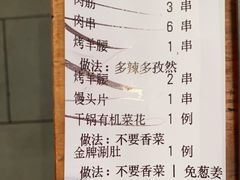 肉筋 3 串
肉串 6 串
烤羊腰 1 串
做法：多辣多孜然
烤羊腰 2 串
馒头片 1 串
干锅有机菜花 1 例
做法：不要香菜
金牌涮肚 1 例
做法：不要香菜 | 免葱姜